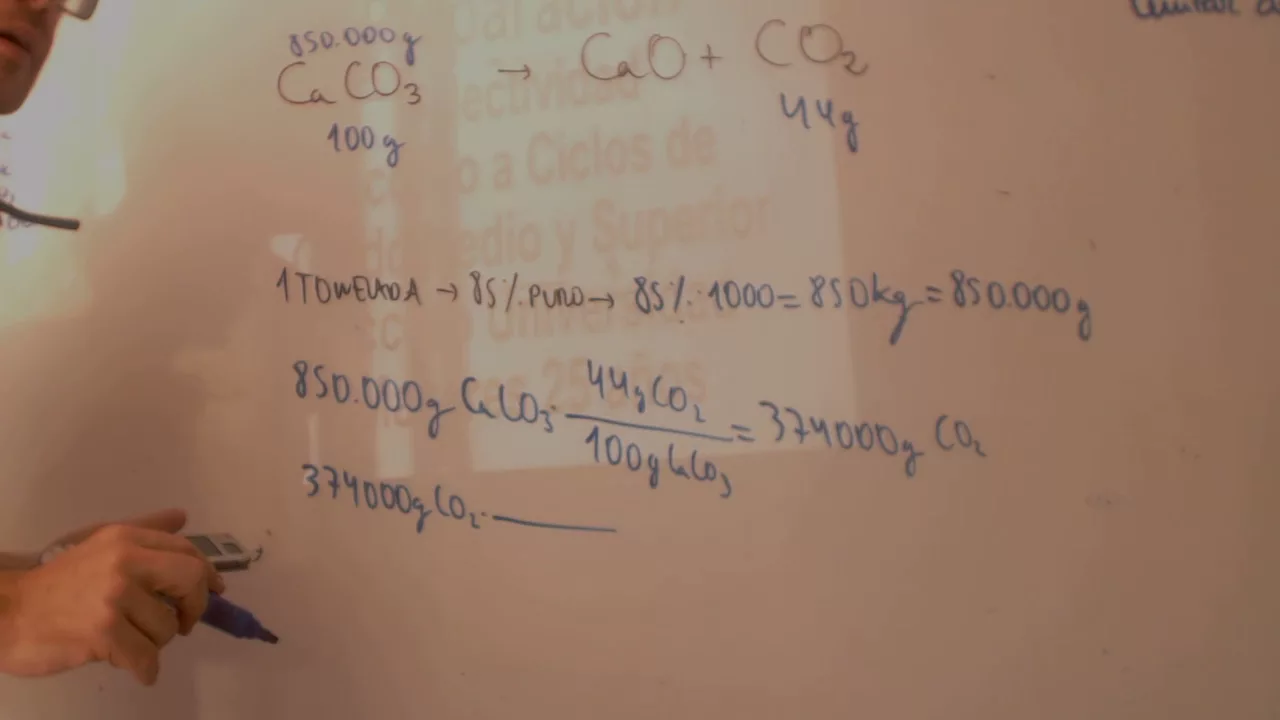 850.000g
CaCO3 → CaO + CO2
100g 44g
1 TONELADA → 85% PURO → 85% · 1000 = 850kg = 850.000g
850.000g CaCO3 · 44g CO2 / 100g CaCO3 = 374000g CO2
374000g CO2 ·
a Ciclos de
edio y Superior